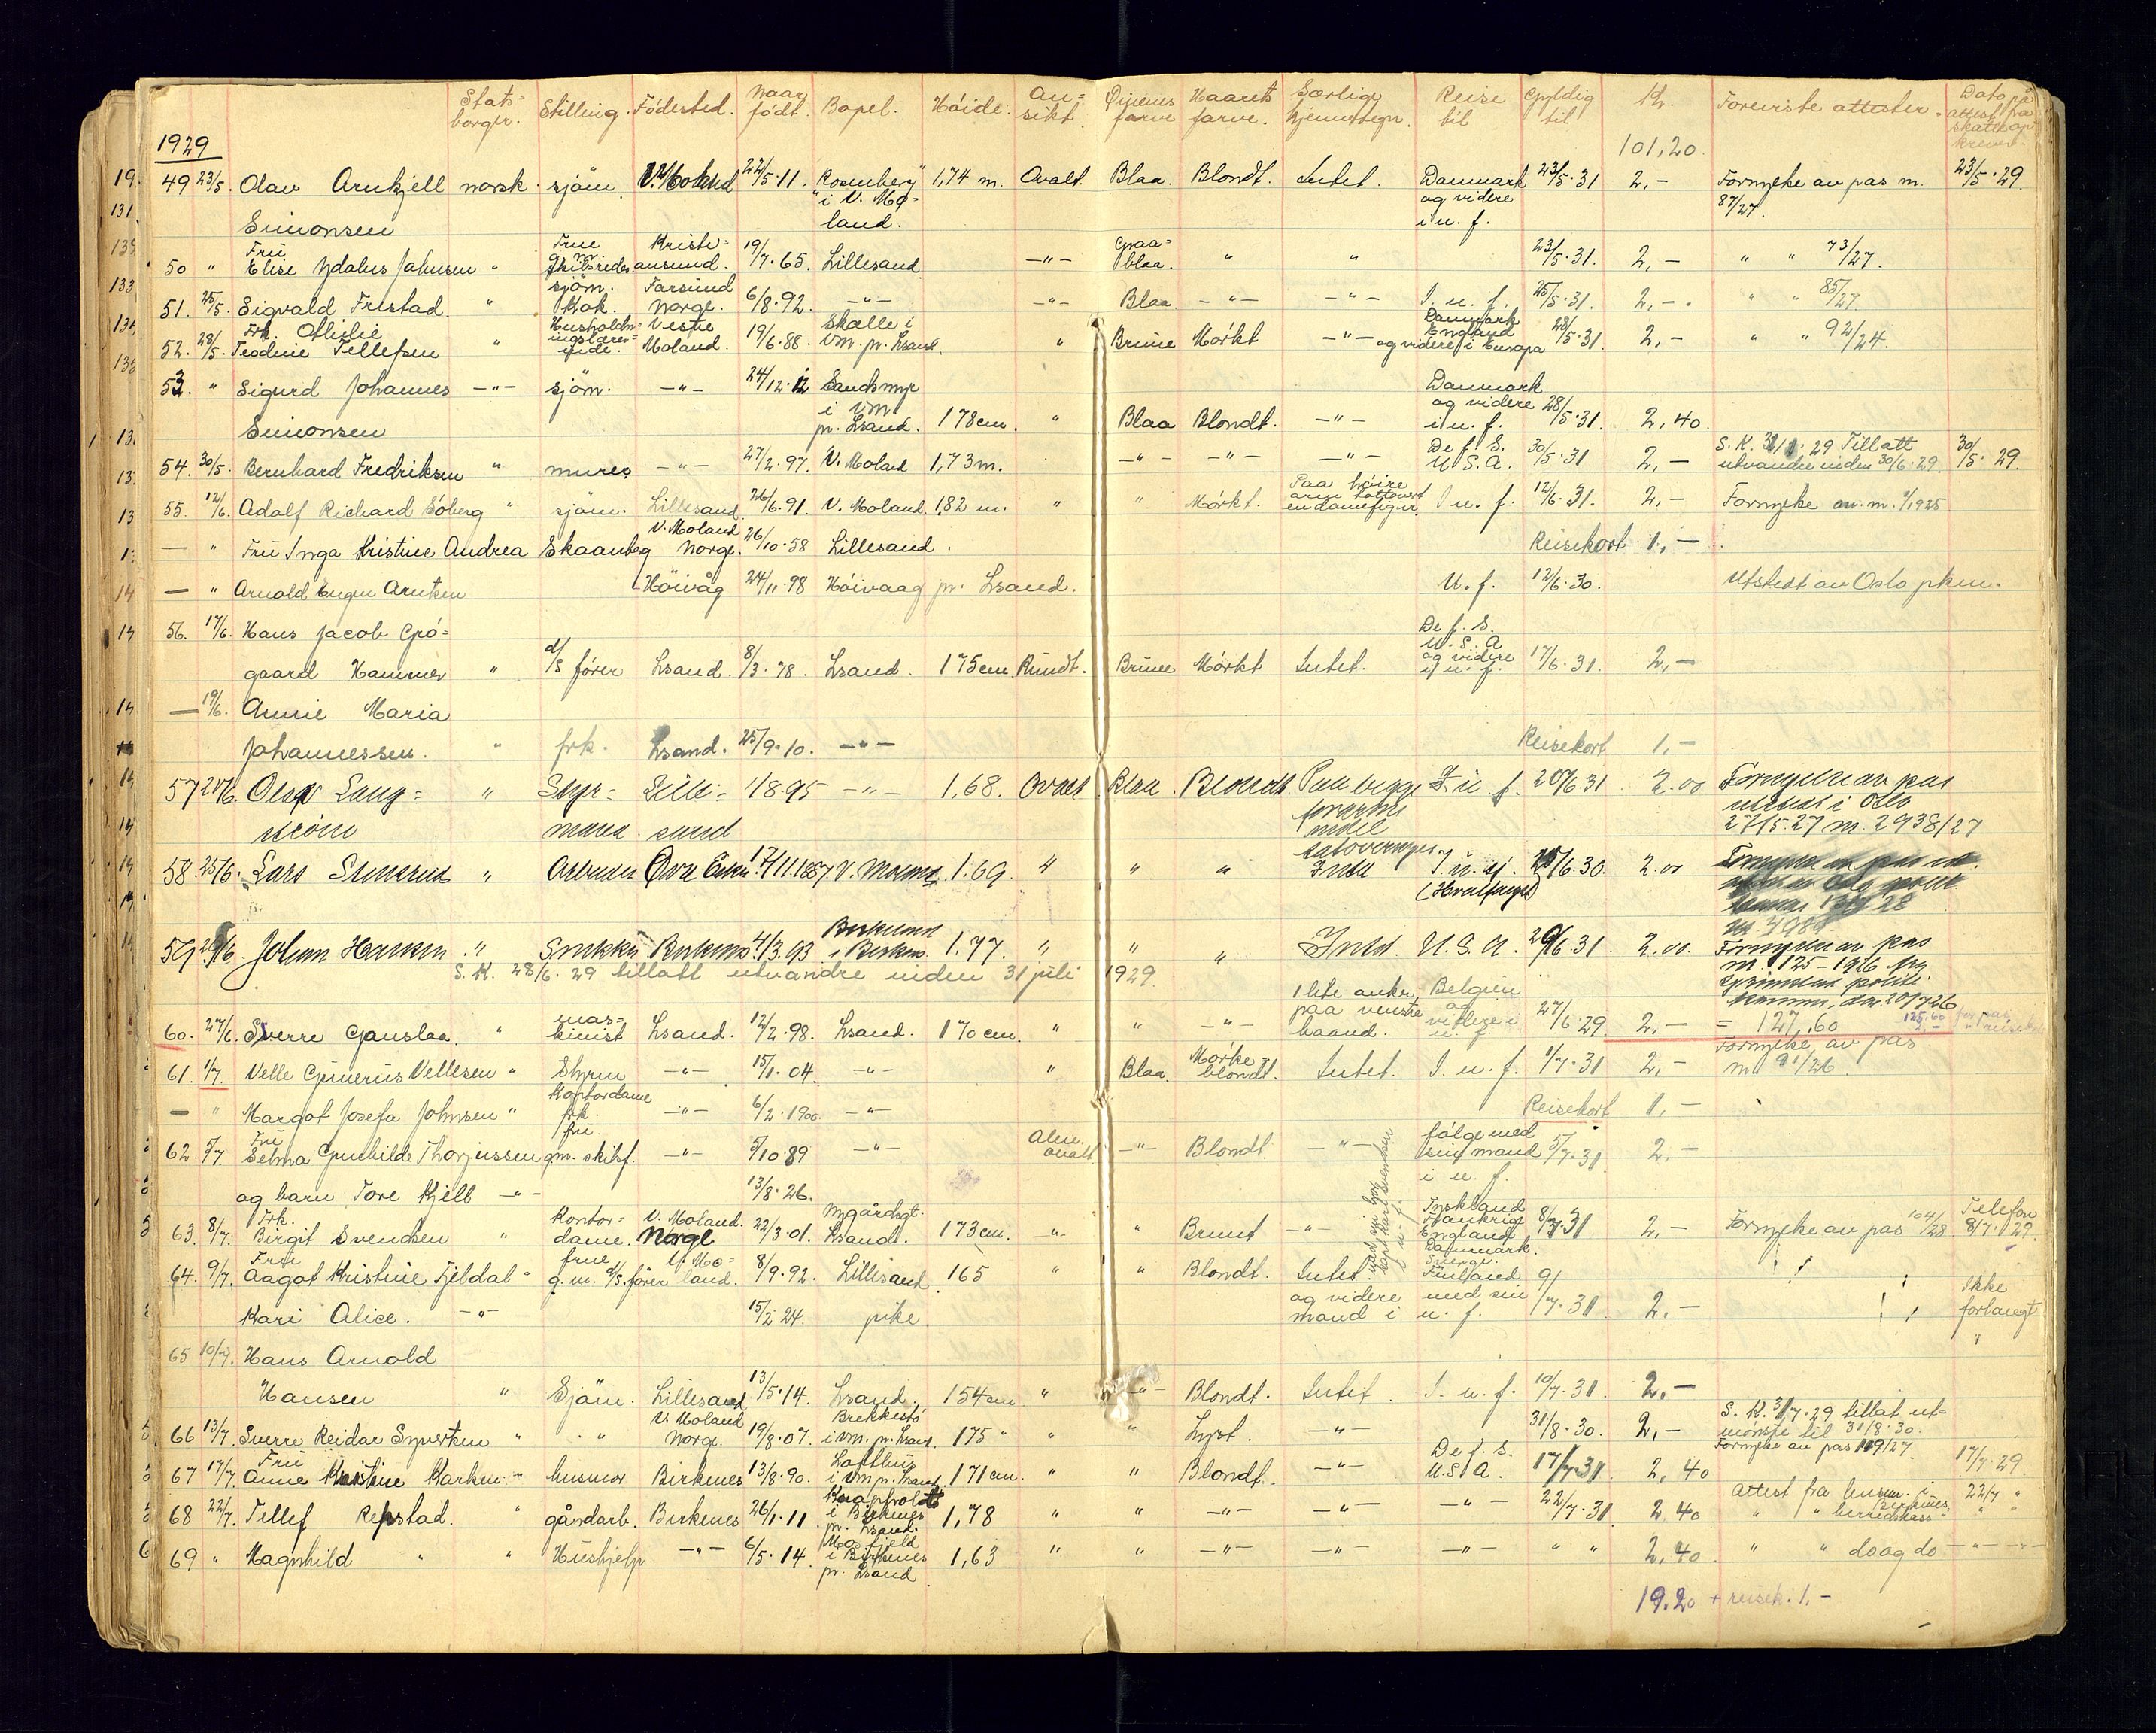 Stats- borger. Stilling. Födested. Naar födt. Bopel. Höide. An- sikt. Öinenes farve Haarets farve. Særlige kjennetegn. Reise til Gyldig til Kr. Foreviste attester. Dato på attest fra skatteop krever.
1929 101,20
49 23/5. Olav Arnkjell Simonsen norsk. sjöm. V. Moland 22/5.11. "Rosenberg" i V. Mo- land. 1,74 m. Ovalt. Blaa. Blondt. Intet. Danmark og videre i u. f. 23/5.31 2,- Fornyelse av pas nr. 87/27. 23/5.29.
50 " Frü Elise Ydalus Johnsen " Frue gm Skibsreder Kristi- ansund. 19/7.65. Lillesand -"- Graa- blaa. " " 23/5.31. 2,- " " 73/27.
51. 25/5. Sigvald Frestad. " sjöm. Kok. Farsund Norge. 6/8.92. -"- -"- Blaa -"- -"- I u. f. 25/5.31. 2,-. " " 85/27
52. 28/5. Frk. Ottilie Teodine Tellefsen " Husholdn- ingslærer- inde. Vestre Moland. 19/6.88. Skalle i V.m. pr. Lsand. " Brune Mörkt -"- Danmark England og videre i Europa 28/5.31. 2,- " " 92/24.
53. " Sigurd Johannes Simonsen -"- sjöm. -"- 24/12.12 Sandsmyr i Vm pr. Lsand. 178 cm. " Blaa Blondt. -"- Danmark og videre i u. f. 28/5.31. 2,40.
54. 30/5. Bernhard Fredriksen " murer -"- 27/2.97. V. Moland 1,73 m. -"- -"- -"- De f. S. U.S.A. 30/5.31 2,- S. K. 29 Tillatt utvandre inden 30/6.29. 30/5.29.
55. 12/6. Adolf Richard Söberg " sjöm. Lillesand 26/6.91. V. Moland. 1,82 m. " " Mörkt. Paa höire arm tattovert en damefigur. I u. f. 12/6.31. 2,- Fornyelse av nr. /1925
— " Frü Inga Kristine Andrea Skaanberg V. Moland Norge. 26/10.58 Lillesand. Reisekort 1,-
— " Arnold Eugen Arntsen Höivåg 24/11.98 Höivaag pr. Lsand. U. f. 12/6.30. Utstedt av Oslo pkm.
56. 17/6. Hans Jacob Grö- gaard Hammer " d/s förer Lsand. 8/3.78. Lsand. 175 cm Rundt. Brune Mörkt Intet. De f. S. U.S.A og videre i u. f. 17/6.31. 2,-
— 19/6. Annie Maria Johannessen. " frk. Lsand. 25/9.10. -"- Reisekort 1,-
57 20/6. Olav Lang- ström " Styr- mand. Lille- sand 1/8.95 -"- 1.68. Ovalt Blaa. Blondt. Paa begge forarme I u. f. 20/6.31 2.00 Fornyelse av pas utstedt i Oslo 27/5.27 nr. 2938/27
58. 25/6. Lars " Arbeider Övre 17/11.1887 V. Moland 1.69. " " " Intet I. u. f. (Hvalfangst) 25/6.30. 2.00
59 29/6. Johan Hansen. " Snekker Birkenes. 4/3.93 Birkeland i Birkenes 1.77. " " " Intet U.S.A. 29/6.31. 2.00. Fornyelse av pas nr. 125-1926 fra Grimstad politi kammer, den 20/7 26
S. K. 28/6. 29 tillatt utvandre inden 31 juli 1929.
60. 27/6. Sverre Gauslaa. " mas- kinist Lsand. 12/2.98. Lsand. 170 cm. " " -"- 1 lite anker paa venstre haand. Belgien og videre i u. f. 27/6.29 2,- = 127,60 125.60 for pas
61. 1/7. Velle Gunerius Vellesen " Styrm -"- 15/1.04. -"- " Blaa. Mörke- blondt. Intet. I. u. f. 1/7.31 2,- Fornyelse av pas nr 91/26.
— " Margot Josefa Johnsen " Kontordame frk. -"- 6/2.1900. -"- Reisekort 1,-
62. 5/7. Frü Selma Gunhilde Thorjussen frü gm. skibsf. -"- 5/10.89 -"- Alm. ovalt. -"- Blondt. -"- fölge med sin mand i u. f. 5/7.31 2,-
og barn Tore Kjell -"- 13/8.26.
63. 8/7. Frk. Birgit Svendsen " Kontor- dame. V. Moland. Norge 22/3.01. Nygårdsgt. Lsand. 173 cm. -"- " Brunt -"- Tyskland Frankrig England Danmark. 8/7.31 2,- Fornyelse av pas 104/28 Telefon 8/7.29.
64. 9/7. Früe Aagot Kristine Fjeldal " frue g.m. d/s. förer V. Mo- land. 8/9.92. Lillesand 165 " " Blondt. Intet. Sverige. Finland og videre med sin mand i u. f. 9/7.31 2,- Ikke forlangt
Kari Alice. -"- 15/2 24. pike.
65 10/7. Hans Arnold Hansen " Sjöm. Lillesand 13/5.14. Lsand. 154 cm " -"- Blondt. Intet. I. u. f. 10/7.31. 2,-
66 13/7. Sverre Reidar Syvertsen " " V. Moland Norge. 19/8.07. Brekkestö i Vm. pr. Lsand. 175 " " " Lyst. -"- 31/8.30. 2,- S. K. 3/7.29 tillat ut- mönstre til 31/8.30. Fornyelse av pas 119/27.
67 17/7. Frü Anna Kristine Karken " husmor Birkenes 13/8.90. Lofthus i Vm pr. Lsand. 171 cm. " " Blondt. -"- De f. S. U.S.A. 17/7.31. 2,40 17/7.29
68 22/7. Tellef Repstad. " gårdarb. Birkenes 26/1.11. i Birkenes pr. Lsand. 1,78 " " -"- -"- -"- 22/7.31 2.40 Attest fra lensm. i Birkenes " " herredskass- 22/7 "
69 " Magnhild " " Hushjelp. -"- 6/5.14. Mosfjeld i Birkenes pr. Lsand. 1,63 " " -"- -"- -"- " " 2,40. " " do og do -"-
19.20 + reisek. 1,-